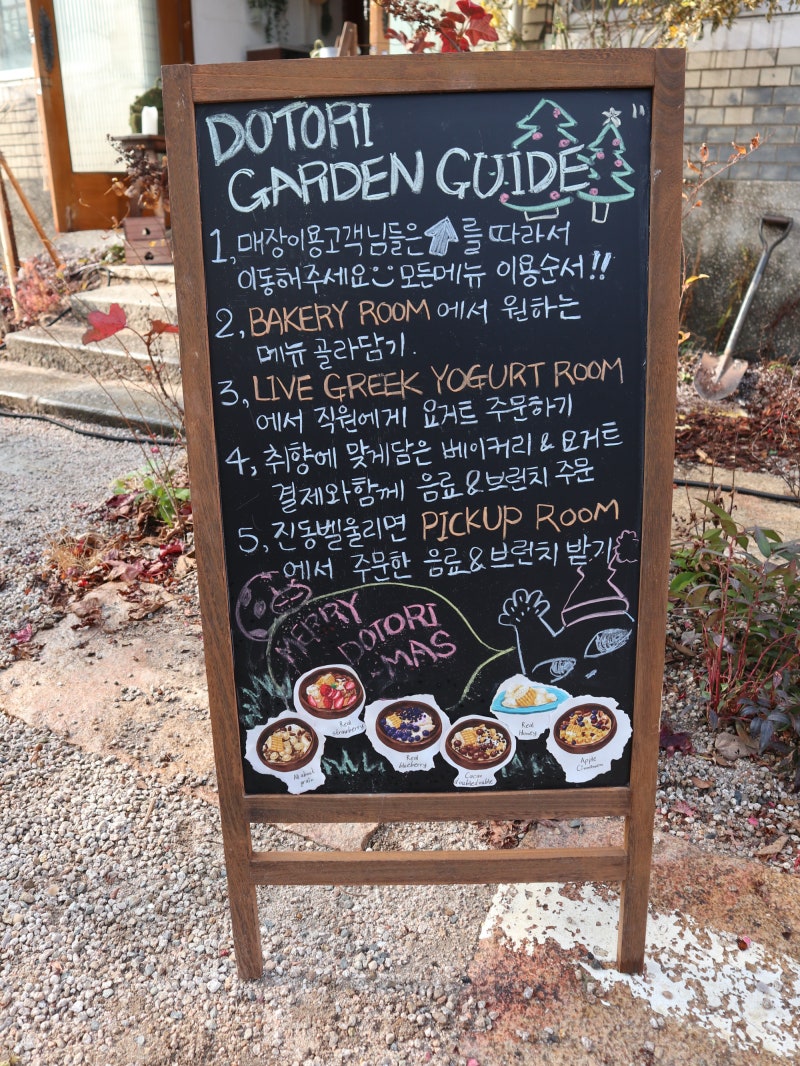 DOTORI
GARDEN GUIDE
1, 매장이용고객님들은 ⇧를 따라서
이동해주세요 모든메뉴 이용순서!!
2, BAKERY ROOM 에서 원하는
메뉴 골라담기.
3, LIVE GREEK YOGURT ROOM
에서 직원에게 요거트 주문하기
4, 취향에 맞게담은 베이커리 & 요거트
결제와함께 음료&브런치 주문
5, 진동벨울리면 PICKUP ROOM
에서 주문한 음료&브런치 받기
MERRY DOTORI
-MAS
Real
strawberry
Real
blueberry
Real
Honey
All about
grain
Cacao
Apple
Cinnamon